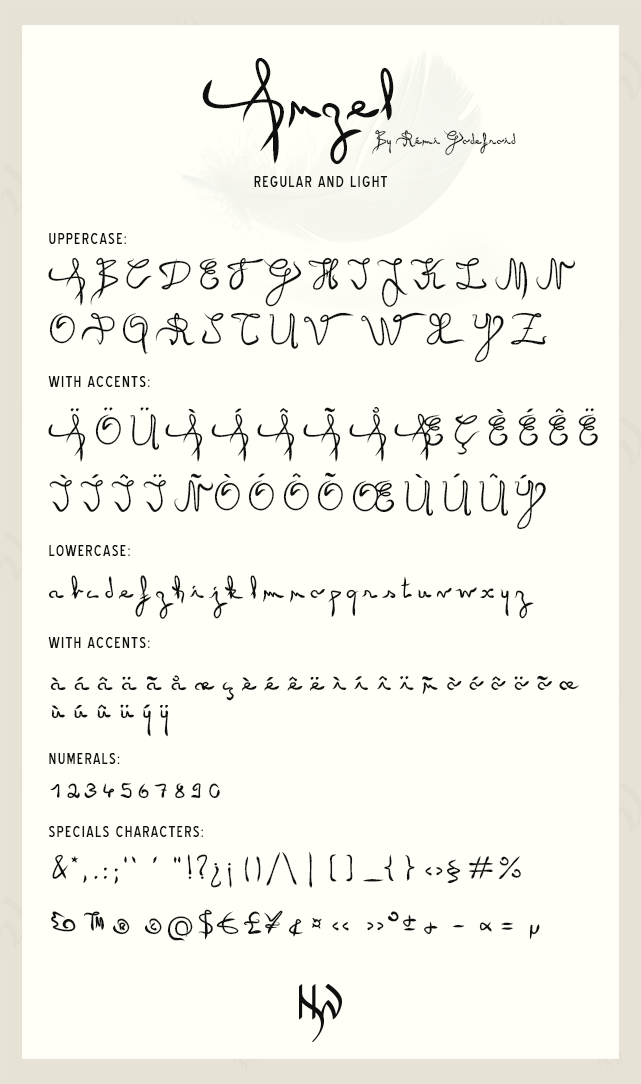 Angel
By Rémi Godefroid
REGULAR AND LIGHT
UPPERCASE:
A B C D E F G H I J K L M N
O P Q R S T U V W X Y Z
WITH ACCENTS:
Ä Ö Ü À Á Â Ã Å Æ Ç È É Ê Ë
Ì Í Î Ï Ñ Ò Ó Ô Õ Œ Ù Ú Û Ý
LOWERCASE:
a b c d e f g h i j k l m n o p q r s t u v w x y z
WITH ACCENTS:
à á â ä ã å æ ç è é ê ë ì í î ï ñ ò ó ô ö õ œ
ù ú û ü ý ÿ
NUMERALS:
1 2 3 4 5 6 7 8 9 0
SPECIALS CHARACTERS:
& * , . : ; ' ' ´ " ! ? ¿ ¡ ( ) / \ | [ ] _ { } < > § # %
™ ® © @ $ € £ ¥ ¢ ¤ « » ° ± + - = µ